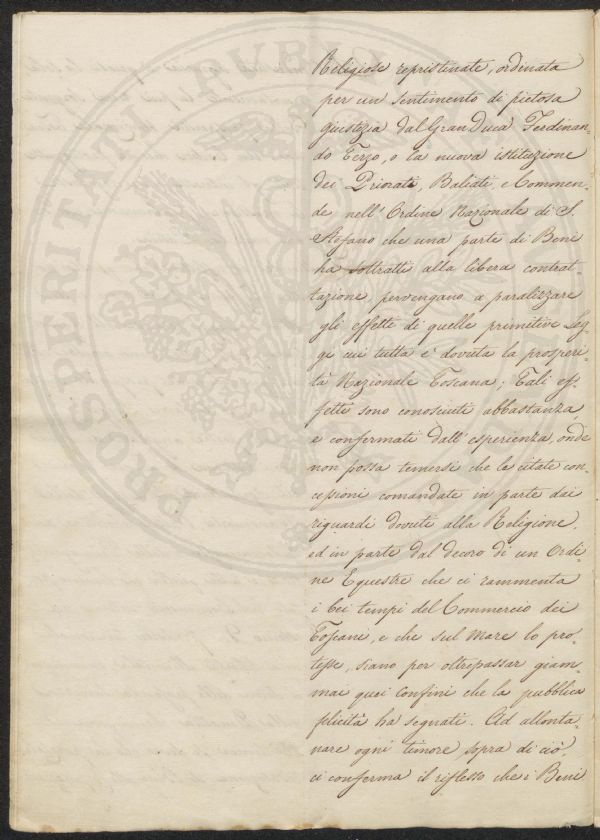 Religiose repristinate, ordinata
per un sentimento di pietosa
giustizia dal Gran Duca Ferdinan-
do Terzo, o la nuova istituzione
dei Priorati, Baliati, e Commen-
de nell'Ordine Nazionale di S.
Stefano che una parte di Beni
ha sottratti alla libera contrat-
tazione, pervengano a paralizzare
gli effetti di quelle primitive Leg-
gi cui tutta è dovuta la prosperi-
tà Nazionale Toscana; Tali ef-
fetti sono conosciuti abbastanza,
e confermati dall'esperienza, onde
non possa temersi che le citate con-
cessioni comandate in parte dai
riguardi dovuti alla Religione,
ed in parte dal decoro di un Ordi-
ne Equestre che ci rammenta
i bei tempi del Commercio dei
Toscani, e che sul mare lo pro-
tesse, siano per oltrepassar giam-
mai quei confini che la pubblica
felicità ha segnati. Ad allonta-
nare ogni timore sopra di ciò,
ci conferma il riflesso che i Beni
PROSPERITATI PUBLICAE